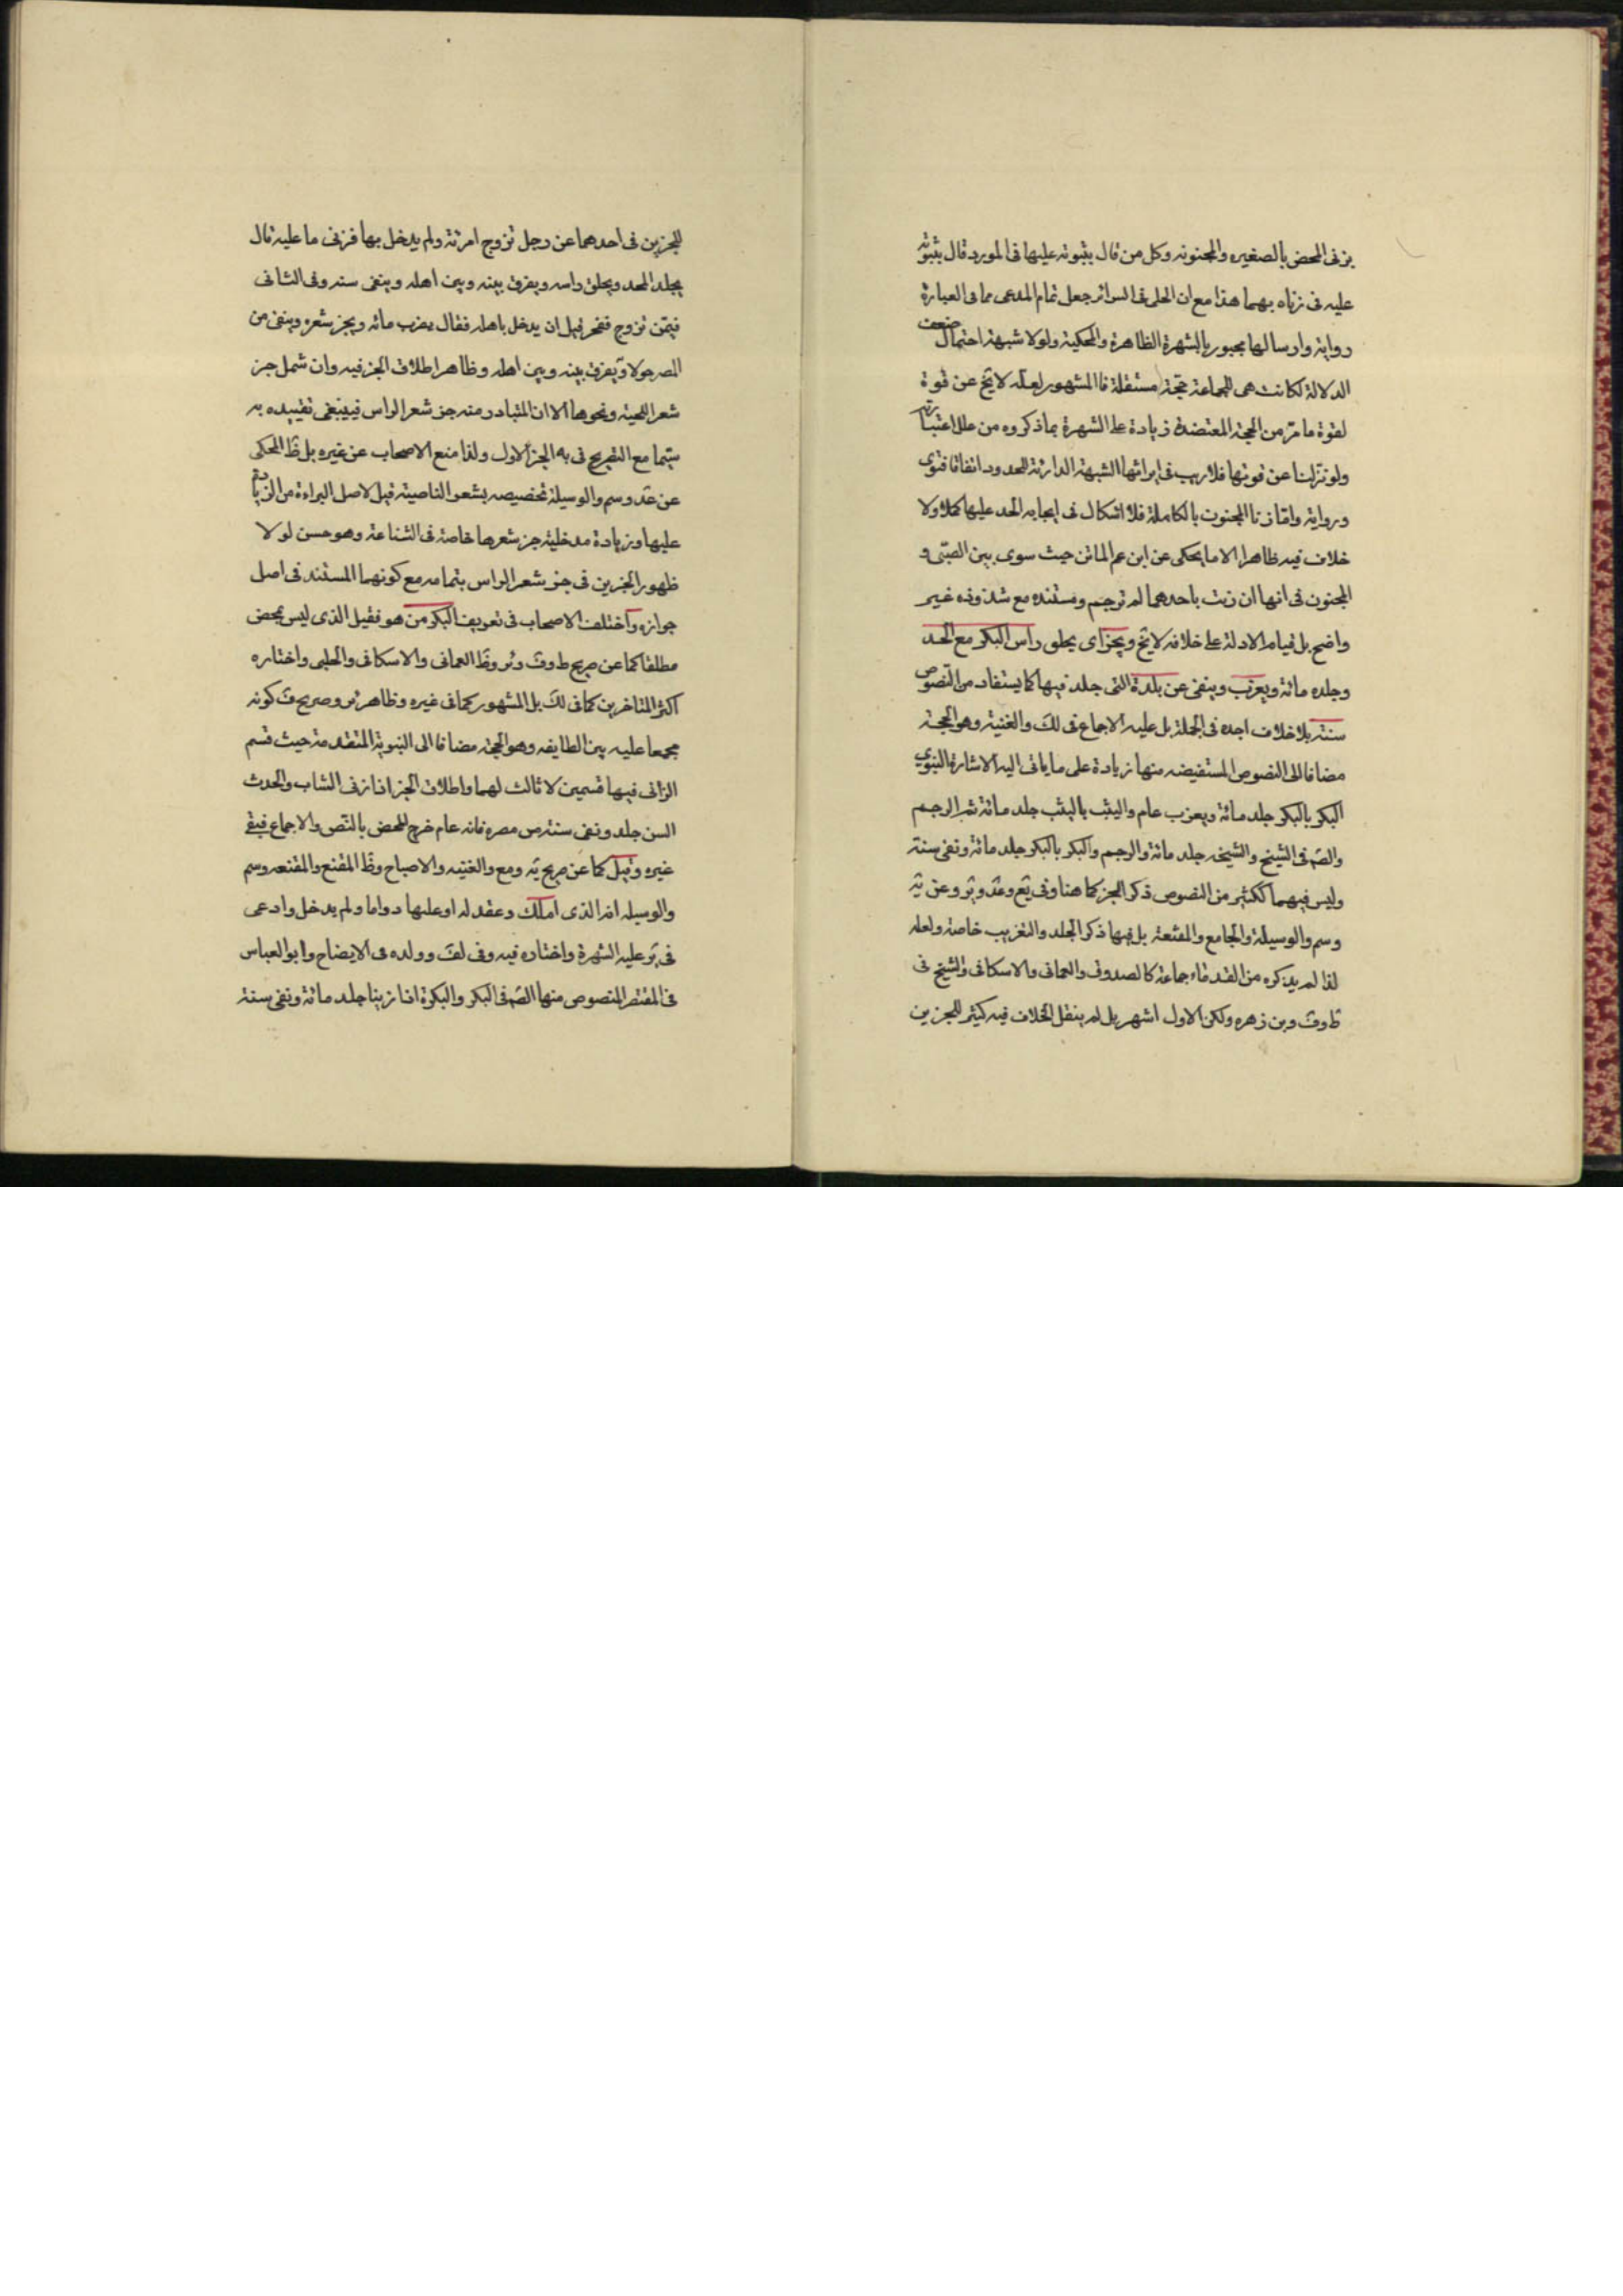 بزنى المحض بالصغيره والمجنونه وكل من قال بثبوته عليها فى المورد قال بثبوته
عليه فى زناه بهما هذا مع ان الحلى فى السرائر جعل تمام المدعى مما فى العبارة
رواية وارسالها مجبور بالشهرة الظاهرة والمحكية ولولا شبهة احتمال ضعف
الدلالة لكانت هى للجماعة حجّة مستقلة فالمشهور لعلّه لا يخ عن قوة
لقوة ما مرّ من الحجة المعتضدة زيادة على الشهرة بما ذكروه من علل اعتباريّة
ولو تنزلنا عن قوتها فلا ريب فى ايراثها الشبهة الدارئة للحدود اتفاقا فتوى
ورواية وامّا زنا المجنون بالكاملة فلا اشكال فى ايجابه الحد عليها كملا ولا
خلاف فيه ظاهرا الا ما يحكى عن ابن عم الماتن حيث سوى بين الصبّى و
المجنون فى انها ان زنت باحدهما لم ترجم ومستنده مع شذوذه غير
واضح بل قيام الادلة على خلافه لا يخ ويجزاى يحلق راس البكر مع الحد
وجلده مائة ويعزب وينفى عن بلدة التى جلد فيها كما يستفاد من النّصوص
سنته بلا خلاف اجده فى الجملة بل عليه الاجماع فى لك والغنية وهو الحجة
مضافا الى النصوص المستفيضه منها زيادة على ما ياتى اليه الاشارة النبوي
البكر بالبكر جلد مائة ويعزب عام والثيب بالثيب جلد مائة ثم الرجم
والصّم فى الشيخ والشيخه جلد مائة والرجم والبكر بالبكر جلد مائة ونفى سنة
وليس فيهما ككثير من النصوص ذكر الجز كما هنا وفى يع وعد وئر وعن يه
وسم والوسيلة والجامع والمقنعة بل فيها ذكر الجلد والتغريب خاصة ولعله
لذا لم يذكره من القدماء جماعة كالصدوق والعمانى والاسكافى والشيخ فى
ط وف وبن زهره ولكن الاول اشهر بل لم ينقل الخلاف فيه كثير للجزين
للجزين فى احدهما عن رجل تزوج امرئة ولم يدخل بها فزنى ما عليه قال
يجلد المحد ويحلق راسه ويفرق بينه وبين اهله وينفى سنه وفى الثانى
فيمن تزوج ففجر قبل ان يدخل باهله فقال يضرب مائه ويجز شعره وينفى من
المصر حولا ويفرق بينه وبين اهله وظاهر اطلاق الجز فيه وان شمل جز
شعر اللحية ونحوها الا ان المتبادر منه جز شعر الراس فينبغى تقييده به
سيما مع التصريح فى به الجز الاول ولذا منع الاصحاب عن غيره بل ظ المحكى
عن عد وسم والوسيلة تخصيصه بشعر الناصية قيل لاصل البراءة من الزيادة
عليها وزيادة مدخلية جز شعرها خاصة فى الشناعة وهو حسن لولا
ظهور الجزين فى جز شعر الراس بتمامه مع كونهما المستند فى اصل
جوازه واختلف الاصحاب فى تعريف البكر من هو فقيل الذى ليس بمحض
مطلقا كما عن صريح ط وف وئر وظ العمانى والاسكافى والحلبى واختاره
اكثر المتاخرين كما فى لك بل المشهور كما فى غيره وظاهر ئر وصريح ف كونه
مجمعا عليه بين الطايفه وهو الحجة مضافا الى النبوية المتقدمة حيث قسم
الزانى فيها قسمين لا ثالث لهما واطلاق الجز اذا زنى الشاب والحدث
السن جلد ونفى سنة من مصره فانه عام خرج المحض بالنّص والاجماع فيبقى
غيره وقيل كما عن صريح يه ومع والغنيه والاصباح وظ المقنع والمقنعه وسم
والوسيله انه الذى املك وعقد له او عليها دواما ولم يدخل وادعى
فى ير عليه الشهرة واختاره فيه وفى لف وولده فى الايضاح وابو العباس
فى المقتصر للنصوص منها الصّم فى البكر والبكرة اذا زنيا جلد مائة ونفى سنة